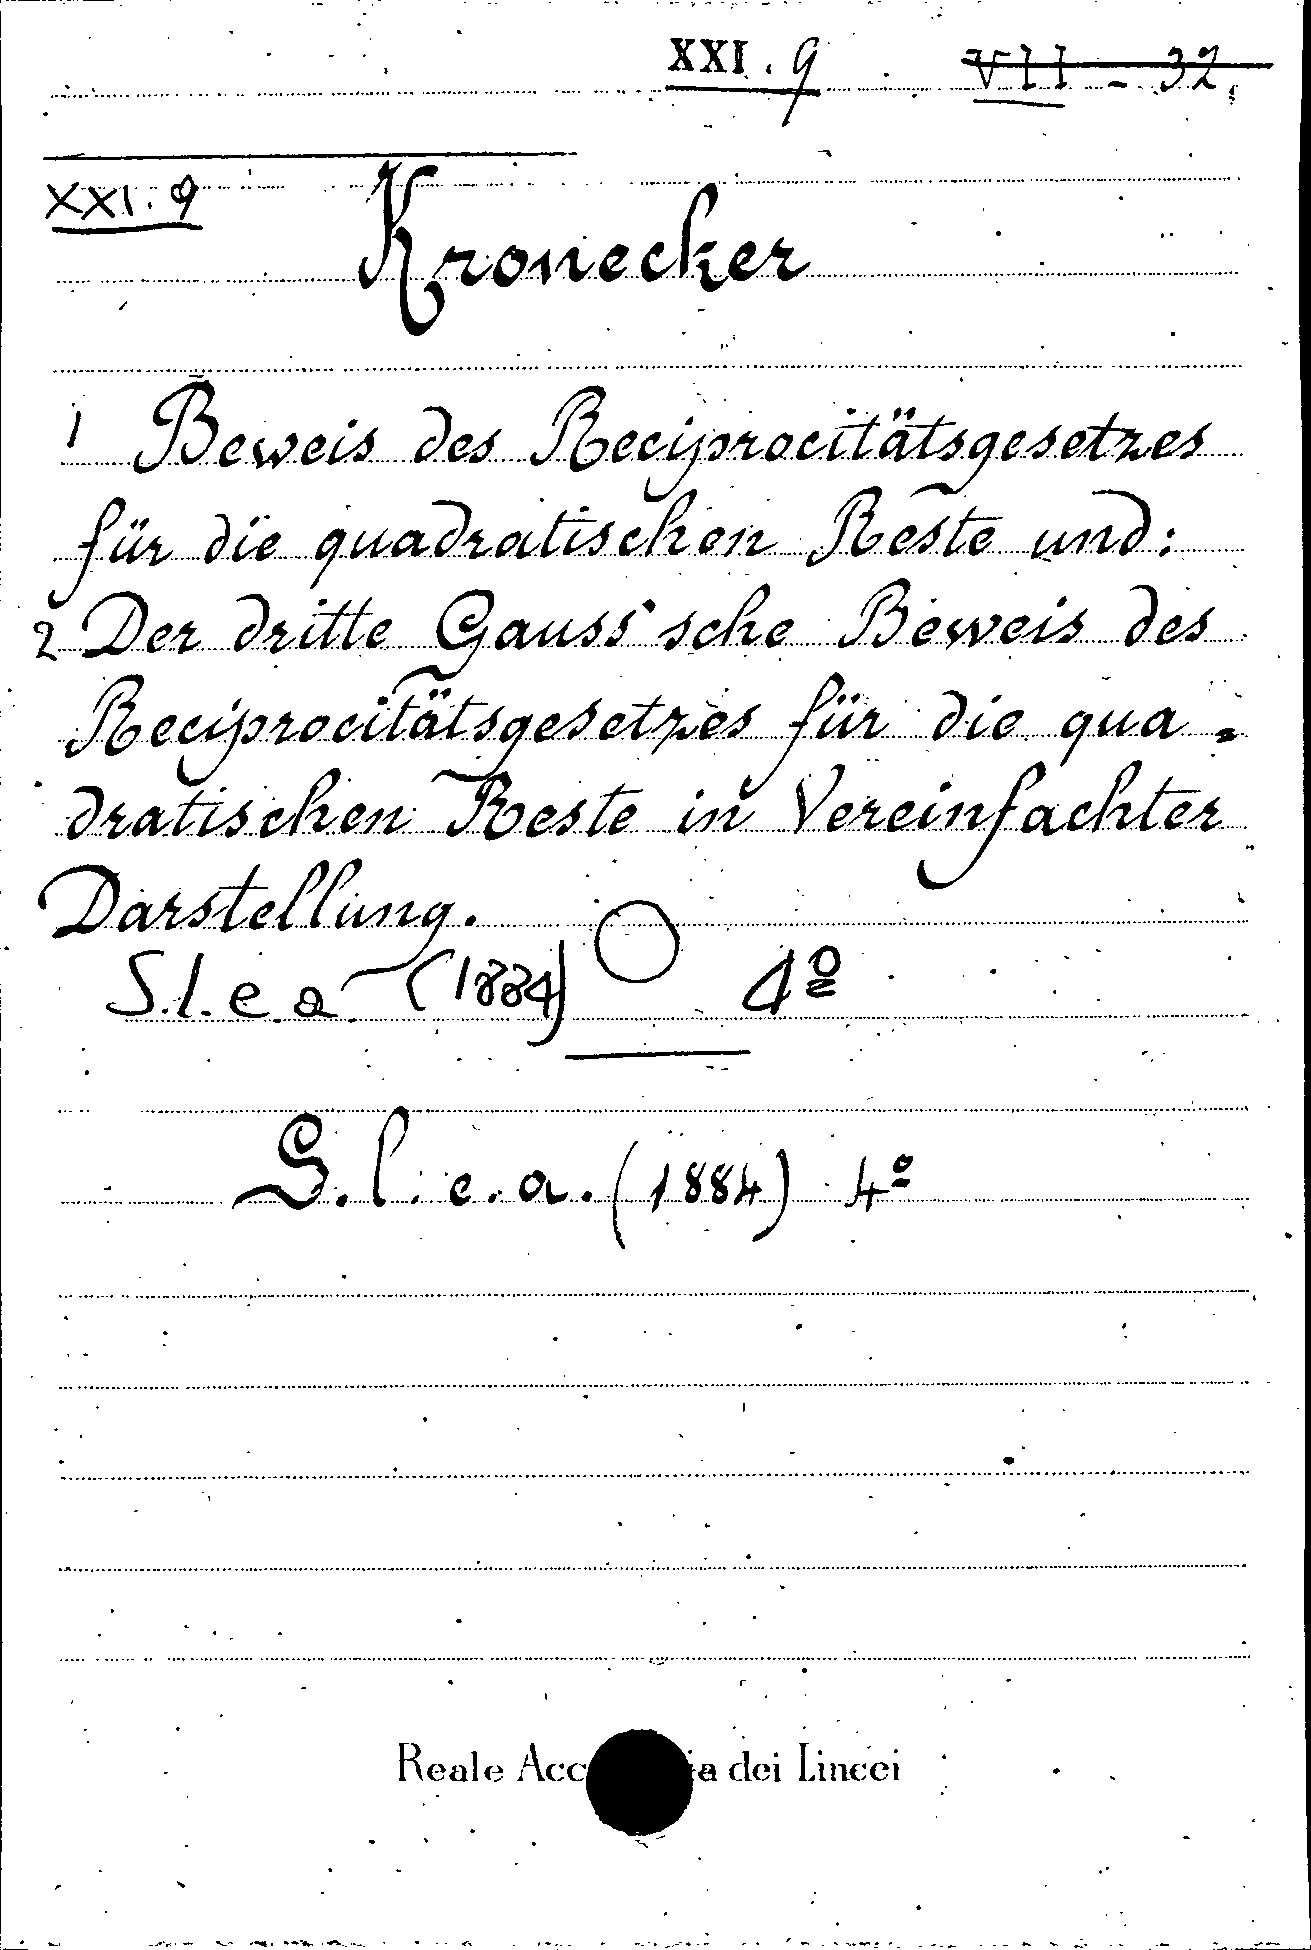 XXI. 9 VII - 32.
XXI. 9
Kronecker
1 Beweis des Reciprocitätsgesetzes
für die quadratischen Reste und:
2 Der dritte Gauss'sche Beweis des
Reciprocitätsgesetzes für die qua=
dratischen Reste in Vereinfachter
Darstellung.
S.l. e a (1884) 4º
S. l. e. a. (1884) 4º
Reale Acc ia dei Lincei